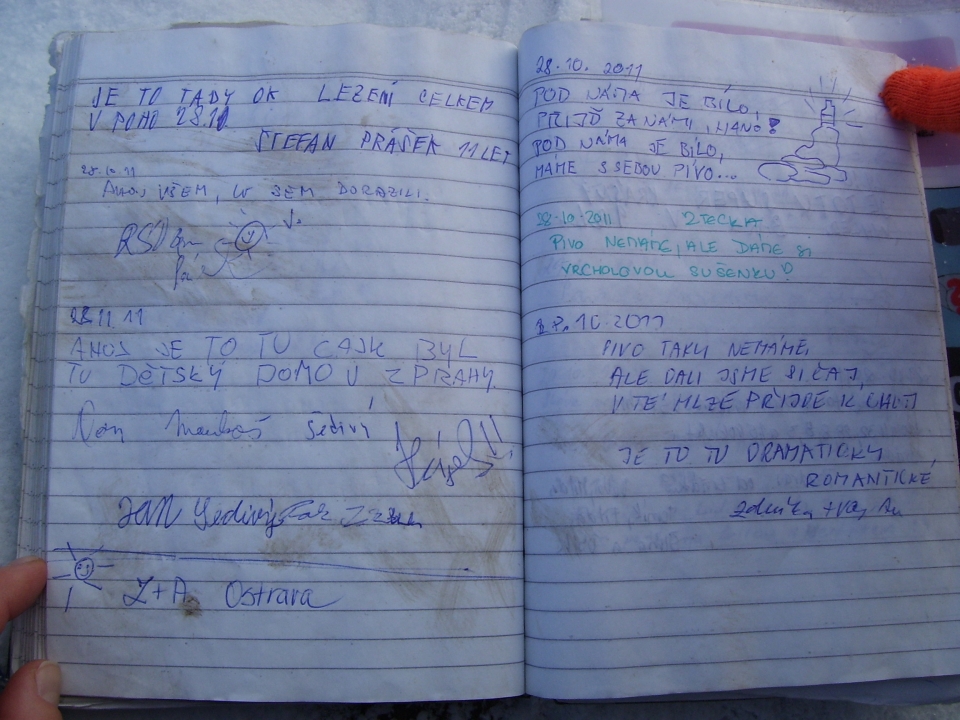 JE TO TADY OK LEZENÍ CELKEM
V POHO 28.10
ŠTEFAN PRÁŠEK 11 LET
28.10.11
AHOJ VŠEM, DORAZILI.
28.11.11
AHOJ JE TO TU BYL
TU DĚTSKÝ DOMOV Z PRAHY.
Šedivý
JAN Šedivý
Z+A Ostrava
28.10.2011
POD NÁMA JE BÍLO,
PŘIJĎ ZA NÁMI,
POD NÁMA JE BÍLO,
MÁME S SEBOU PIVO...
28.10.2011 ZTEČKA
PIVO NEMÁME, ALE DÁME SI
VRCHOLOVOU SUŠENKU!
10.2011
PIVO TAKY NEMÁME,
ALE DALI JSME SI ČAJ,
V TÉ MLZE PŘIJDE K CHUTI
JE TO TU DRAMATICKY
ROMANTICKÉ